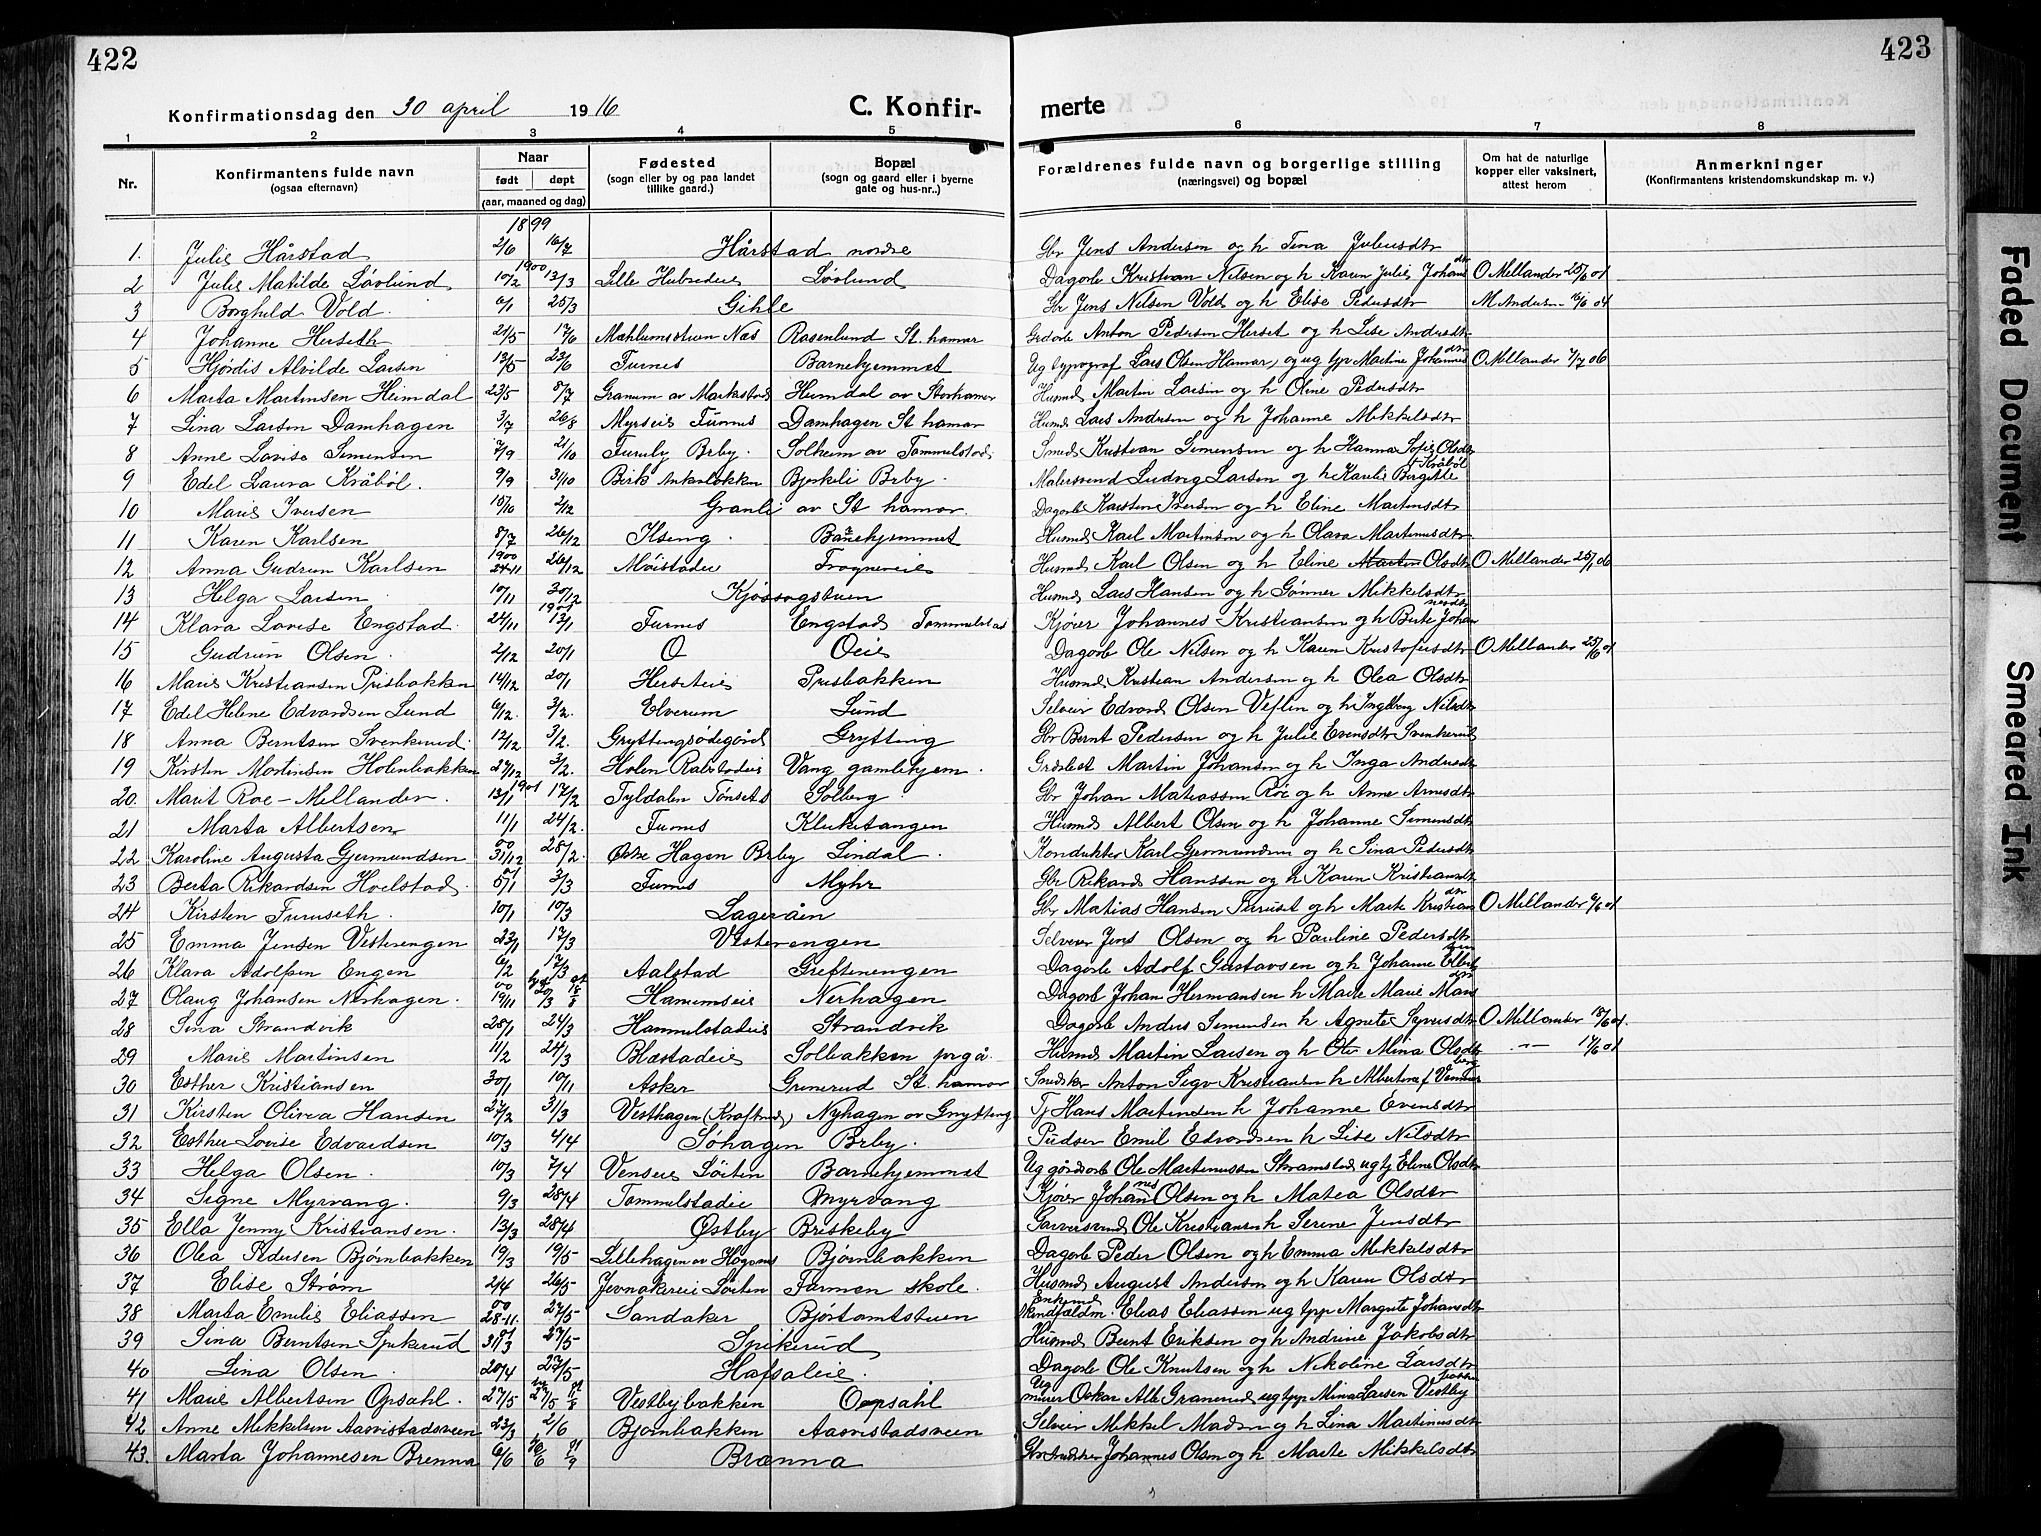 422
423
Konfirmationsdag den 30 april 1916
C. Konfir-
merte
1 2 3 4 5 6 7 8
Nr. Konfirmantens fulde navn (ogsaa efternavn) Naar født døpt (aar, maaned og dag) Fødested (sogn eller by og paa landet tillike gaard.) Bopæl (sogn og gaard eller i byerne gate og hus-nr..) Forældrenes fulde navn og borgerlige stilling (næringsvei) og bopæl Om hat de naturlige kopper eller vaksinert, attest herom Anmerkninger (Konfirmantens kristendomskundskap m. v.)
1899
1. Julie Hårstad 2/6 16/7 Hårstad nordre Gbr Jens Andersen og h Tina Juliusdtr
1900
2 Julie Matilde Løvlund 10/2 13/3 Lille Hubred Løvlund Dagarb Kristian Nilsen og h Karen Julie Johansdtr O Mellander 25/6 01
3 Borghild Vold. 6/1 25/3 Gihle Gbr Jens Nilsen Vold og h Elise Pedersdtr M Andersen
4 Johanne Herseth 21/5 17/6 Mæhlumsstuen Næs Rosenlund St. hamar Anton Pedersen Herset og h Lise Andersdtr
5 Hjørdis Alvilde Larsen 13/5 23/6 Furnes Barnehjemmet Ug typograf Lars Olsen Hamar, og ug tpi Martine Johannesdtr O Mellander 7/7 06
6 Marta Martinsen Heimdal 23/5 8/7 Granum av Heimdal av Storhamar Husmd Martin Larsen og h Oline Pedersdtr
7 Lina Larsen Damhagen 3/7 26/8 Furnes Damhagen St hamar Husmd Lars Andersen og h Johanne Mikkelsdtr
8 Anne Lovise Simensen 7/9 21/10 Furuly Brby. Solheim av Tommelstad Smed Kristian Simensen og h Hanna Sofie Olsdtr
9 Edel Laura Kråbøl. 9/9 31/10 Birk Ankerløkken Bjerkeli Brby. Malersvend Ludvig Larsen og h Kaulie Birgitte f Kråbøl
10 Marie Iversen 15/10 2/12 Granli av St hamar. Dagarb Karsten Iversen og h Eline Martinsdtr
11 Karen Karlsen 8/7 26/12 Ilseng. Barnehjemmet Husmd Karl Martinsen og h Olava Martinusdtr
12 Anna Gudrun Karlsen 1900 24-11 26/12 Møistadeie Frognereie Husmd Karl Olsen og h Eline Olsdtr O Mellander 25/1 06
13 Helga Larsen 10/11 30/12 Kjøssogstuen Husmd Lars Hansen og h Gønner Mikkelsdtr
1901
14 Klara Lovise Engstad. 24/11 13/1 Furnes Engstad Tommelstad Kjører Johannes Kristiansen og h Berte Johannesdtr
15 Gudrun Olsen. 2/12 20/1 O Oeie Dagarb Ole Nilsen og h Karen Kristofersdtr O Mellander 25/6 01
16 Marie Kristiansen Prisbakken 14/12 20/1 Herseteie Prisbakken Husmd Kristian Andersen og h Olea Olsdtr
17 Edel Helene Edvardsen Lund 6/12. 3/2. Elverum Lund Selveier Edvard Olsen Veflin og h Ingeborg Nilsdtr
18 Anna Berntsen Svenkerud. 12/12 3/2. Gryttingsødegård Grytting Gbr Bernt Pedersen og h Julie Evensdtr Svenkerud
19 Kirsten Martinsen Holenbakken 27/12 3/2. Holen Rabstadeie Vang gamlehjem. Martin Johansen og h Inga Andersdtr
1901
20. Marit Roe-Mellander. 13/1 17/2 Tyldalen Tønset Solberg. Gbr Johan Matiassen Røe og h Anne Arnesdtr
21 Marta Albertsen 11/1 24/2. Furnes Kluketangen Husmd Albert Olsen og h Johanne Simensdtr
22 Karoline Augusta Gjermundsen 00 31/12 28/2. Østre Hagen Brby Lindal. Konduktør Karl Gjermundsen og h Lina Pedersdtr
23 Berta Rikardsen Hoelstad. 01 5/1 3/3 Furnes Myhr Gbr Rikard Hanssen og h Karen Kristiansdtr
24 Kirsten Furuseth. 10/1 10/3 Lageråen Gbr Matias Hansen Furuset og h Marte Kristiansdtr O Mellander
25 Emma Jensen Vesterengen 23/1 17/3 Vesterengen Selveier Jens Olsen og h Pauline Pedersdtr
26 Klara Adolfsen Engen 6/2 17/3 Aalstad Greftenengen Dagarb Adolf Gustavsen og h Johanne
27 Olaug Johansen Nerhagen. 00 19/11 Hanumseie Nerhagen Dagarb Johan Hermansen h Marte Marie
28 Lina Strandvik 28/1 24/3 Hammelstadeie Strandvik Dagarb Anders Simensen h Agnete Syversdtr O Mellander 18/6 01.
29 Marie Martinsen 11/2 24/3 Blæstadeie Solbakken Husmd Martin Larsen og h Mina Olsdtr -"- 17/6 01
30 Esther Kristiansen 30/1 10/11 Asker Grinerud St. hamar Snedker Anton Sigv Kristiansen h Albertine f
31 Kirsten Olivia Hansen 27/2 31/3 Vesthagen (Kraftnes) Nyhagen av Grytting Tj Hans Martinsen h Johanne Evensdtr
32 Esther Lovise Edvardsen 10/3 4/14 Søhagen Brby. Pudser Emil Edvardsen h Lise Nilsdtr
33 Helga Olsen. 10/3 7/14 Venseie Løiten Barnehjemmet Ug gårdsarb Ole Martinussen Stramstad ug tj Eline Olsdtr
34 Signe Myrvang. 9/3 28/4 Tommelstadeie Myrvang Kjører Johannes Olsen og h Matea Olsdtr
35 Ella Jenny Kristiansen. 13/3 28/4 Østby Briskeby Garversvend Ole Kristiansen h Serine Jensdtr
36 Olea Pedersen Bjørnbakken 19/3 19/5 Lillehagen av Bjørnbakken Dagarb Peder Olsen og h Emma Mikkelsdtr
37 Elise Strøm 2/4 26/5 Jevnakereie Løiten Farmen skole. Husmd August Andersen og h Karen Olsdtr
38 Marta Emilie Eliassen 00 28-11. 27/5 Sandaker Bjørtomtstuen Enkemd Elias Eliassen ug tpp Margrete Johansdtr
39 Lina Berntsen Spikerud 01 31/3 27/5 Spikerud Husmd Bernt Eriksen og h Andrine Jakobsdtr
40 Lina Olsen 20/4 27/5 Hafsaleie. Dagarb Ole Knutsen og h Nikoline Larsdtr
41 Marie Albertsen Opsahl. 27/5 Vestbybakken Opsahl Ug murer Oskar Alb Granerud ug tpp Mina Larsen Vestby
42 Anne Mikkelsen Aasvistadsveen 23/3 2/6 Bjørnbakken Aasvistadsveen Selveier Mikkel Madsen og h Lina Martinusdtr
43. Marta Johannesen Brenna 6/6 Brænna Gbr Snedker Johannes Olsen og h Marte Mikkelsdtr
Faded Document
Smeared Ink